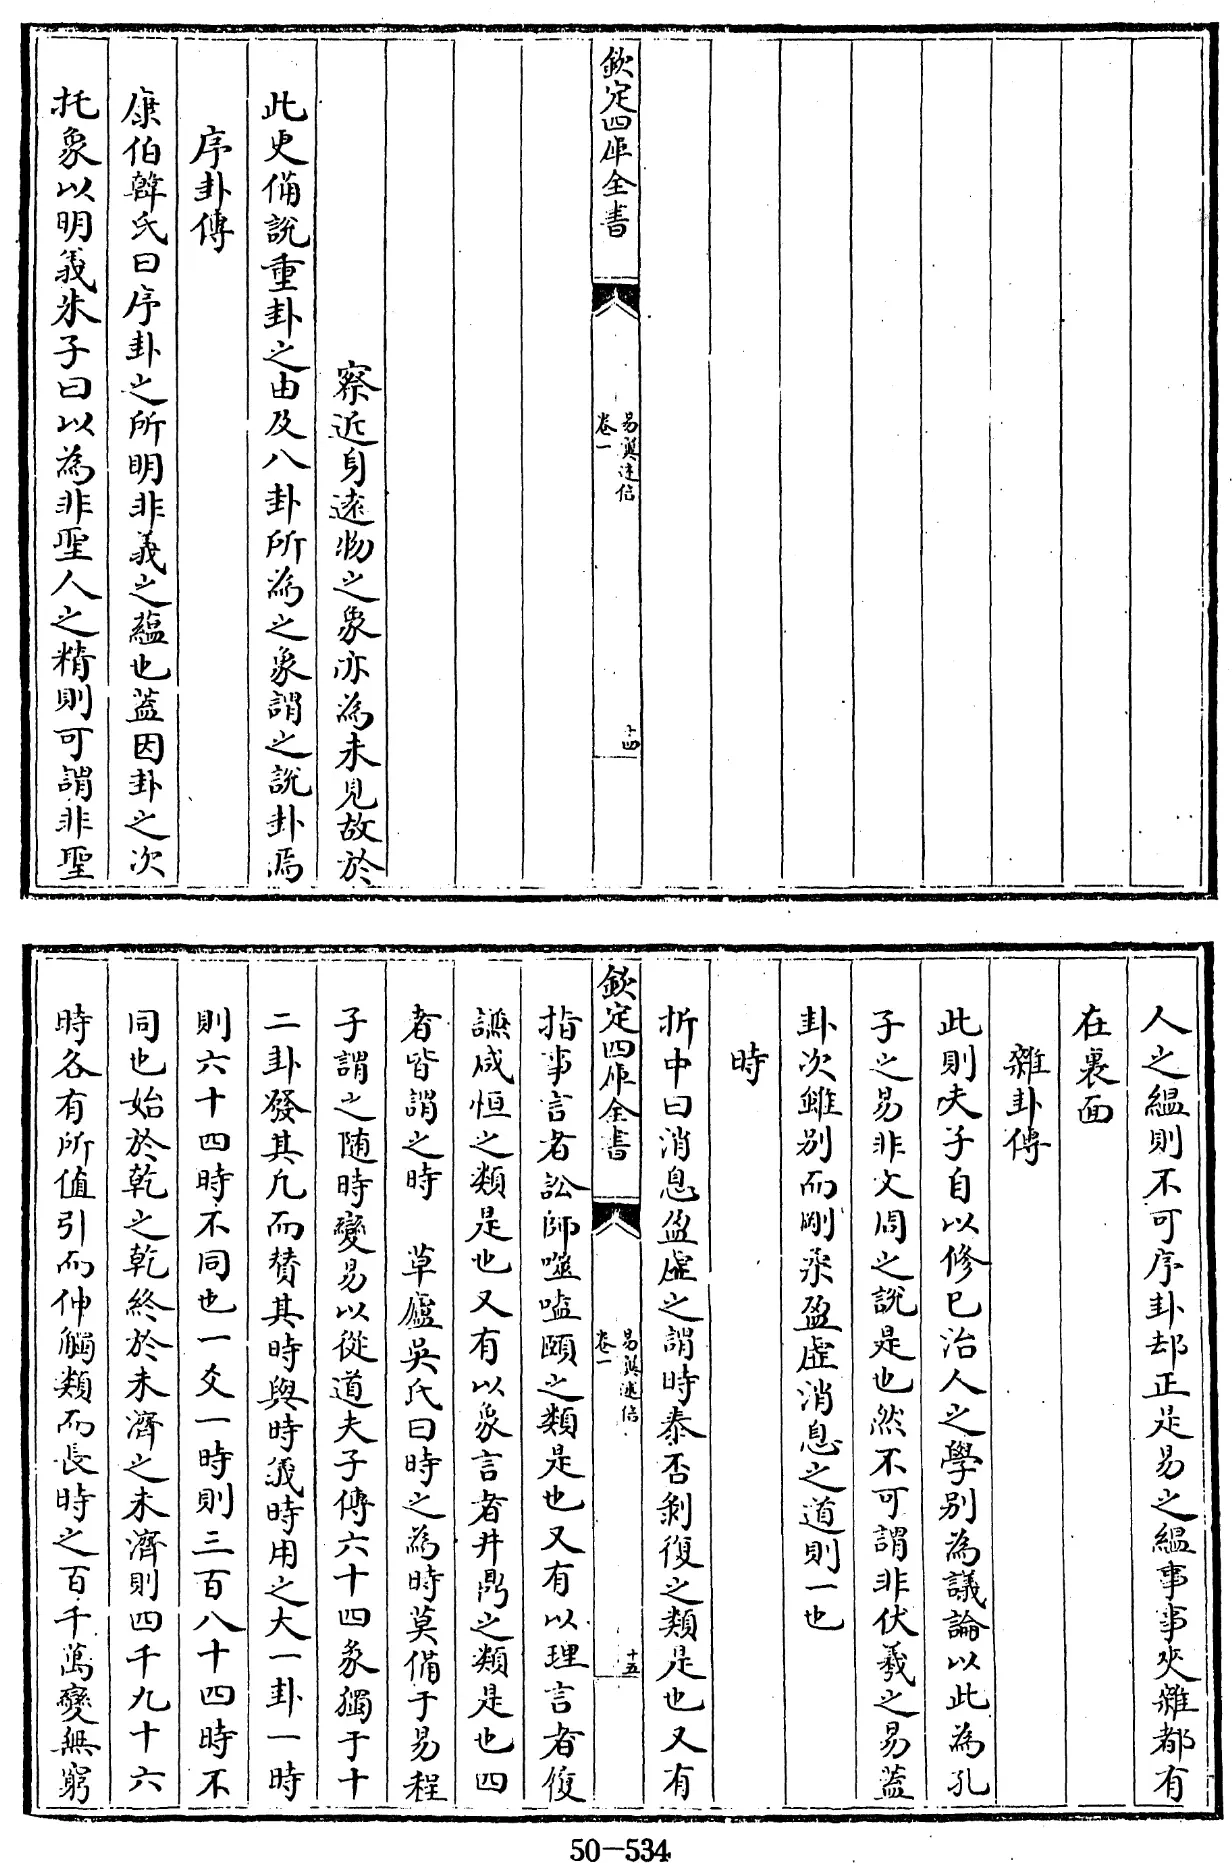 欽定四庫全書
易翼述信
卷一
十四
察近身遠物之象亦為未見故於
此更備說重卦之由及八卦所為之象謂之說卦焉
序卦傳
康伯韓氏曰序卦之所明非義之蘊也蓋因卦之次
托象以明義朱子曰以為非聖人之精則可謂非聖
人之緼則不可序卦却正是易之緼事事夾雜都有
在裏面
雜卦傳
此則夫子自以修已治人之學别為議論以此為孔
子之易非文周之說是也然不可謂非伏羲之易蓋
卦次雖别而剛柔盈虛消息之道則一也
時
折中曰消息盈虛之謂時泰否剝復之類是也又有
欽定四庫全書
易翼述信
卷一
十五
指事言者訟師噬嗑頤之類是也又有以理言者履
謙咸恒之類是也又有以象言者井鼎之類是也四
者皆謂之時 草廬吳氏曰時之為時莫備于易程
子謂之隨時變易以從道夫子傳六十四彖獨于十
二卦發其凡而賛其時與時義時用之大一卦一時
則六十四時不同也一爻一時則三百八十四時不
同也始於乾之乾終於未濟之未濟則四千九十六
時各有所值引而伸觸類而長時之百千萬變無窮
50—534